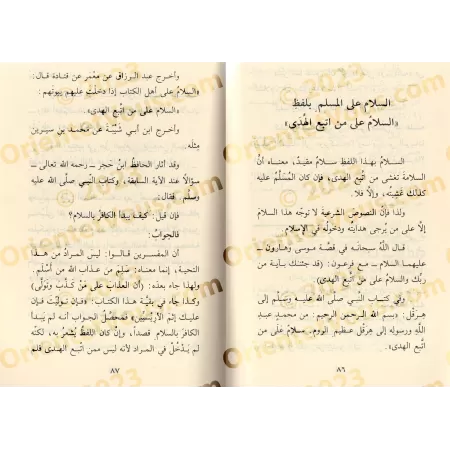 السلام على المسلم بلفظ
«السلام على من اتبع الهدى»
السلام بهذا اللفظ سلام مقيد، معناه أن
السلامة تغشى من اتبع الهدى، فإن كان المُسَلَّم عليه
كذلك غشيته، وإلا فلا.
ولذا فإن النصوص الشرعية لا توجه هذا السلام
إلا على من يُرجى هدايته ودخوله في الإسلام.
قال الله سبحانه في قصة موسى وهارون ـ
عليهما السلام ـ مع فرعون: (قد جئناك بآية من
ربك والسلام على من اتبع الهدى)
وفي كتاب النبي صلى الله عليه وسلم إلى
هرقل: «بسم الله الرحمن الرحيم: من محمدٍ عبدِ
الله ورسوله إلى هرقل عظيم الروم. سلامٌ على من
اتَّبع الهدى».
٨٦
وأخرج عبد الرزاق عن معمر عن قتادة قال:
«السلام على أهل الكتاب إذا دخلت عليهم بيوتهم:
«السلام على من اتبع الهدى».
وأخرج ابن أبي شيبة عن محمد بن سيرين
مثله.
وقد أثار الحافظ ابن حجر ـ رحمه الله تعالى ـ
سؤالاً عند الآية السابقة، وكتاب النبي صلى الله عليه
وسلم. فقال:
فإن قيل: كيف يبدأ الكافر بالسلام؟
فالجواب:
أن المفسرين قالوا: ليس المراد من هذا
التحية، إنما معناه: سَلِمَ من عذاب الله من أسْلَم.
ولهذا جاء بعده: (أن العذاب على من كذَّب وتولَّى)
وكذا جاء في بقية هذا الكتاب: «فإن توليت فإن
عليك إثم الأريسيين» فمحصل الجواب أنه لم يبدأ
الكافر بالسلام قصداً، وإن كان اللفظ يُشعر به، لكنه
لم يَدْخُلْ في المراد لأنه ليس ممن اتبع الهدى فلم
٨٧
© 2023